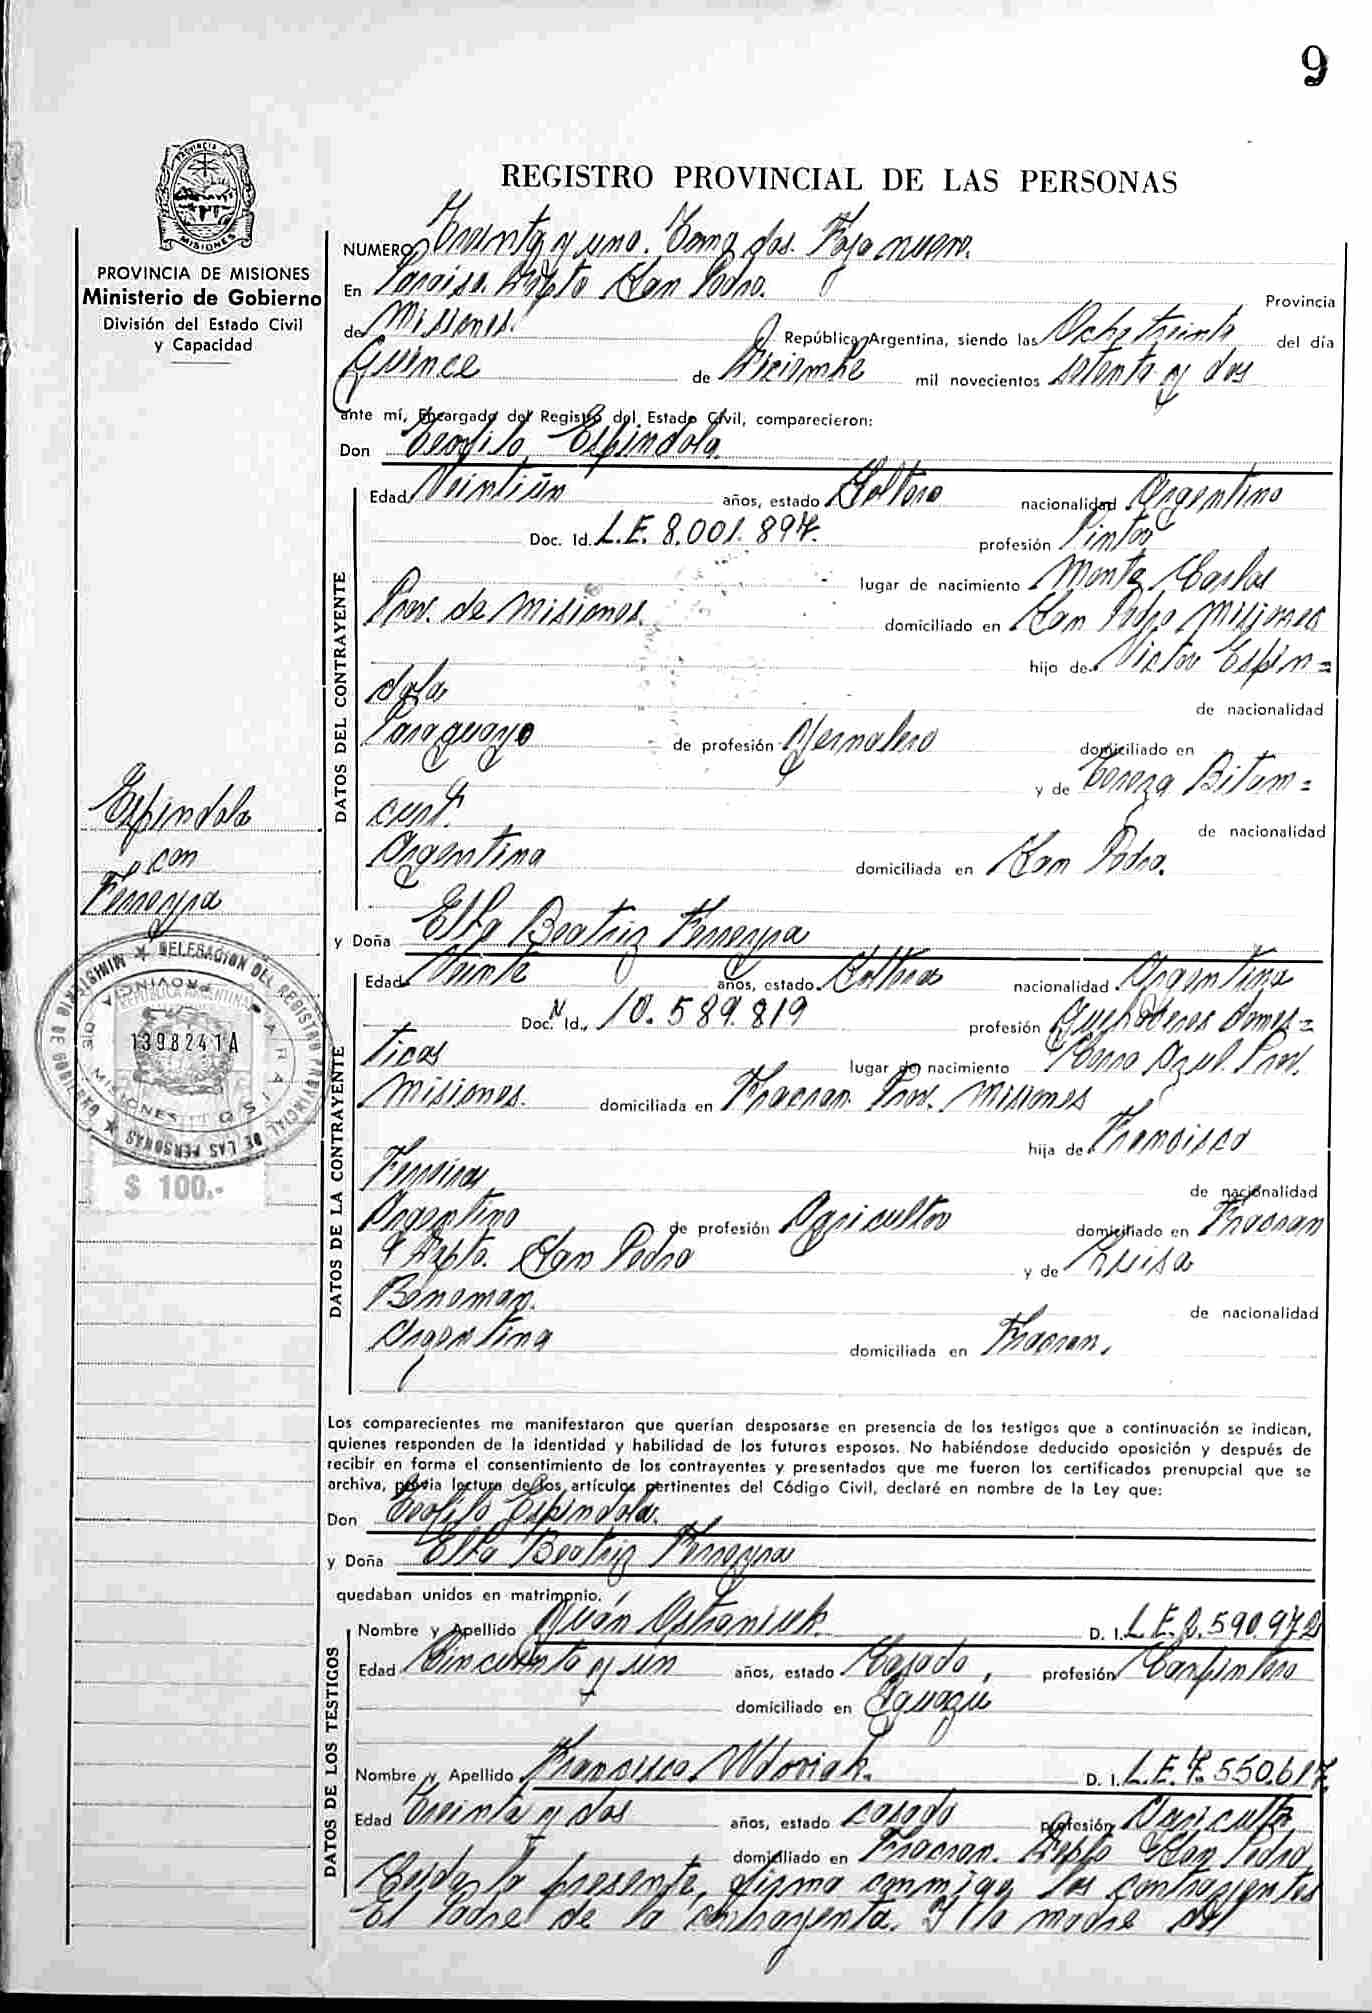 9
REGISTRO PROVINCIAL DE LAS PERSONAS
PROVINCIA DE MISIONES
Ministerio de Gobierno
División del Estado Civil
y Capacidad
NUMERO Treinta y uno. Tomo dos. Foja nueve.
En Paraiso. Depto San Pedro. Provincia
de Misiones. República Argentina, siendo las Ocho treinta del día
Quince de Diciembre mil novecientos setenta y dos
ante mí, Encargado del Registro del Estado Civil, comparecieron:
Don Teofilo Espindola.
DATOS DEL CONTRAYENTE
Edad Veintiún años, estado Soltero nacionalidad Argentino
Doc. Id. L.E. 8.001.897. profesión Pintor
lugar de nacimiento Monte Carlos
Prov. de Misiones. domiciliado en San Pedro Misiones
hijo de Victor Espin=
dola de nacionalidad
Paraguayo de profesión Jornalero domiciliado en
y de Tereza Bitem=
curt. de nacionalidad
Argentina domiciliada en San Pedro.
Espindola
con
Ferreyra
y Doña Elba Beatriz Ferreyra
DATOS DE LA CONTRAYENTE
Edad Veinte años, estado Soltera nacionalidad Argentina
Doc. Id. N 10.589.819 profesión Quehaceres domes=
ticos lugar de nacimiento Cerro Azul. Prov.
Misiones. domiciliada en Fracran. Prov. Misiones
hija de Francisco
Ferreira de nacionalidad
Argentino de profesión Agricultor domiciliado en Fracran
Depto. San Pedro y de Luisa
de nacionalidad
Argentina domiciliada en Fracran.
DELEGACION DEL REGISTRO PROVINCIAL DE LAS PERSONAS
MINISTERIO DE GOBIERNO
PROVINCIA DE MISIONES
PARAISO
REPUBLICA ARGENTINA
1398241A
$ 100.-
Los comparecientes me manifestaron que querían desposarse en presencia de los testigos que a continuación se indican,
quienes responden de la identidad y habilidad de los futuros esposos. No habiéndose deducido oposición y después de
recibir en forma el consentimiento de los contrayentes y presentados que me fueron los certificados prenupcial que se
archiva, previa lectura de los artículos pertinentes del Código Civil, declaré en nombre de la Ley que:
Don Teofilo Espindola.
y Doña Elba Beatriz Ferreyra
quedaban unidos en matrimonio.
DATOS DE LOS TESTIGOS
Nombre y Apellido Juán D. I. L.E. 2.590.972
Edad Cincuenta y un años, estado Casado, profesión Carpintero
domiciliado en Iguazu
Nombre y Apellido Francisco Wdoviak. D. I. L.E. 7.550.617.
Edad Treinta y dos años, estado casado profesión Agricultor
domiciliado en Fracran. Depto San Pedro
Leida la presente, firma conmigo los contrayentes
El Padre de la contrayenta. Y la madre del